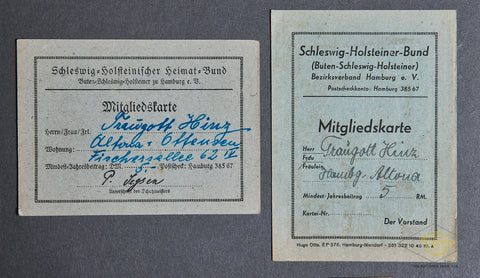 Schleswig-Holsteinischer Heimat-Bund
Buten-Schleswig-Holsteiner zu Hamburg e. V.
Mitgliedskarte
Herrn/Frau/Frl. Traugott Hinz
Altona-Ottensen
Wohnung: Fischersallee 62 IV
Mindest-Jahresbeitrag: DM. 5.- Postscheck: Hamburg 385 67
P. Jessen
Unterschrift des Schatzmeisters
Schleswig-Holsteiner-Bund
(Buten-Schleswig-Holsteiner)
Bezirksverband Hamburg e. V.
Postscheckkonto: Hamburg 385 67
Mitgliedskarte
Herr
Frau Traugott Hinz
Fräulein
Hambg. Altona
Mindest-Jahresbeitrag 5 RM.
Kartei-Nr.
Der Vorstand
Hugo Otto, EP 376, Hamburg-Niendorf - 351 322 10 46 Kl. A